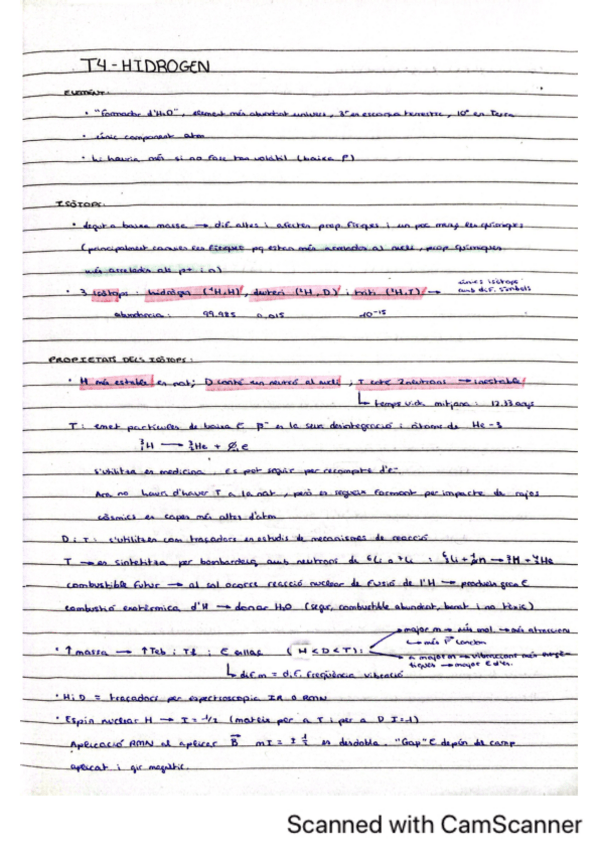 T4.-HIDROGEN
ELEMENT:
• "formador d'H₂O", element més abundant univers, 3º en escorça terrestre, 10º en Terra
• únic component atm
• hi hauria més si no fos tan volàtil (baixa P)
ISÒTOPS:
• degut a baixa massa → dif. altes i afecten prop físiques i un poc menys les químiques
(principalment canvien les físiques pq estan més al nucli, prop químiques
més als p+ i n)
• 3 isòtops: hidrogen (¹H, H), deuteri (²H, D) i triti (³H, T) → únics isòtops
amb dif. símbols
abundància: 99.985 0,015 10⁻¹⁵
PROPIETATS DELS ISÒTOPS:
• H més estable en nat; D conté un neutró al nucli; T conté 2 neutrons → inestable
↳ temps vida mitjana: 12.33 anys
T: emet partícules de baixa E β⁻ en la seua desintegració i àtoms de He-3
³₁H → ³₂He + e
s'utilitza en medicina, es pot seguir per recompte d'e⁻
Ara no hauria d'haver T a la nat, però es segueix formant per impacte de rajos
còsmics en capes més altes d'atm
D i T: s'utilitzen com traçadors en estudis de mecanismes de reacció
T → es sintetitza per bombardeig amb neutrons de ⁶Li o ⁷Li: ⁶₃Li + ¹₀n → ³₁H + ⁴₂He
combustible futur → al sol ocorre reacció nuclear de fusió de l'H → gran E
combustió exotèrmica d'H → donar H₂O (segur, combustible abundant, barat i no tòxic)
• ↑massa → ↑Teb i Tf i E enllaç (H<D<T):
→ major m → mol. → més atraccions
→ més F London
→ a major m → vibracions més
→ major E
↳ dif. m = dif. freqüència vibració
• H i D = traçadors per espectroscopia IR o RMN
• Espín nuclear H → I = 1/2 (mateix per a T i per a D I=1)
Aplicació RMN al aplicar B mI = ± 1/2 es desdobla. "Gap" E depén de camp
aplicat i gir magnètic.
Scanned with CamScanner